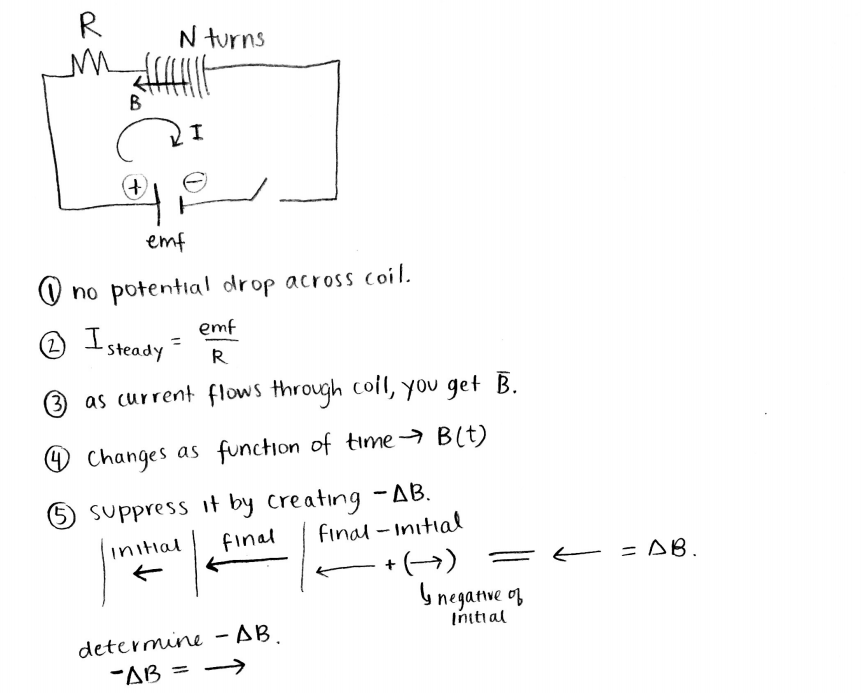 R
N turns
B
I
+ −
emf
① no potential drop across coil.
② I steady = emf/R
③ as current flows through coil, you get B̄.
④ changes as function of time → B(t)
⑤ suppress it by creating −ΔB.
initial | final | final − initial
← | ← | ← + (→) = ← = ΔB.
↳ negative of
initial
determine −ΔB.
−ΔB = →